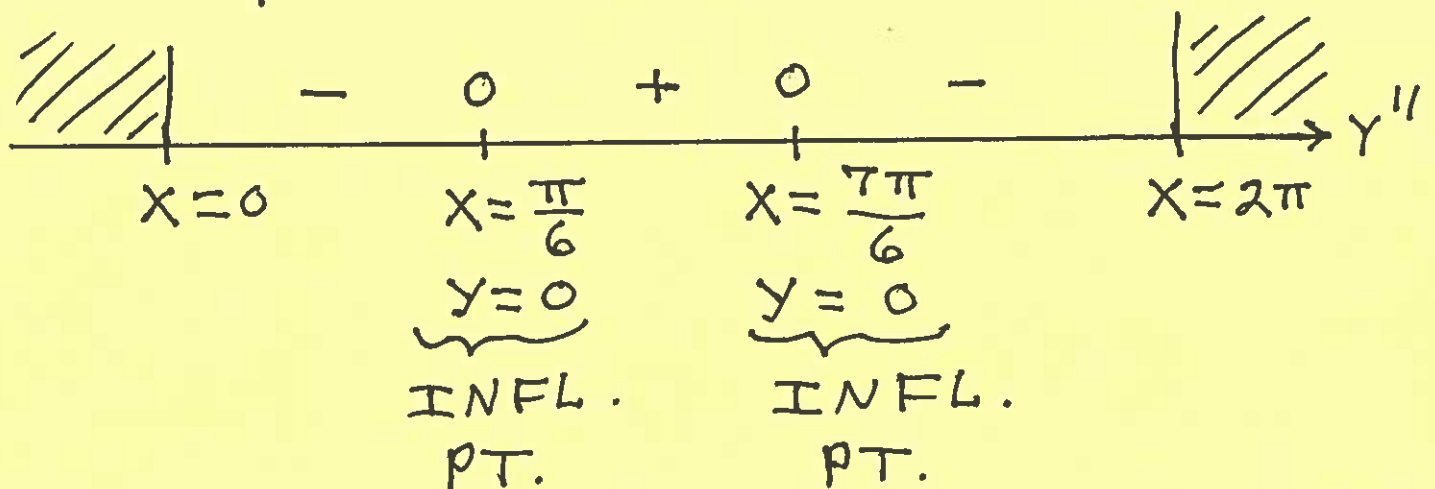 - 0 + 0 - Y"
X=0 X=π/6 X=7π/6 X=2π
Y=0 Y=0
INFL. INFL.
PT. PT.